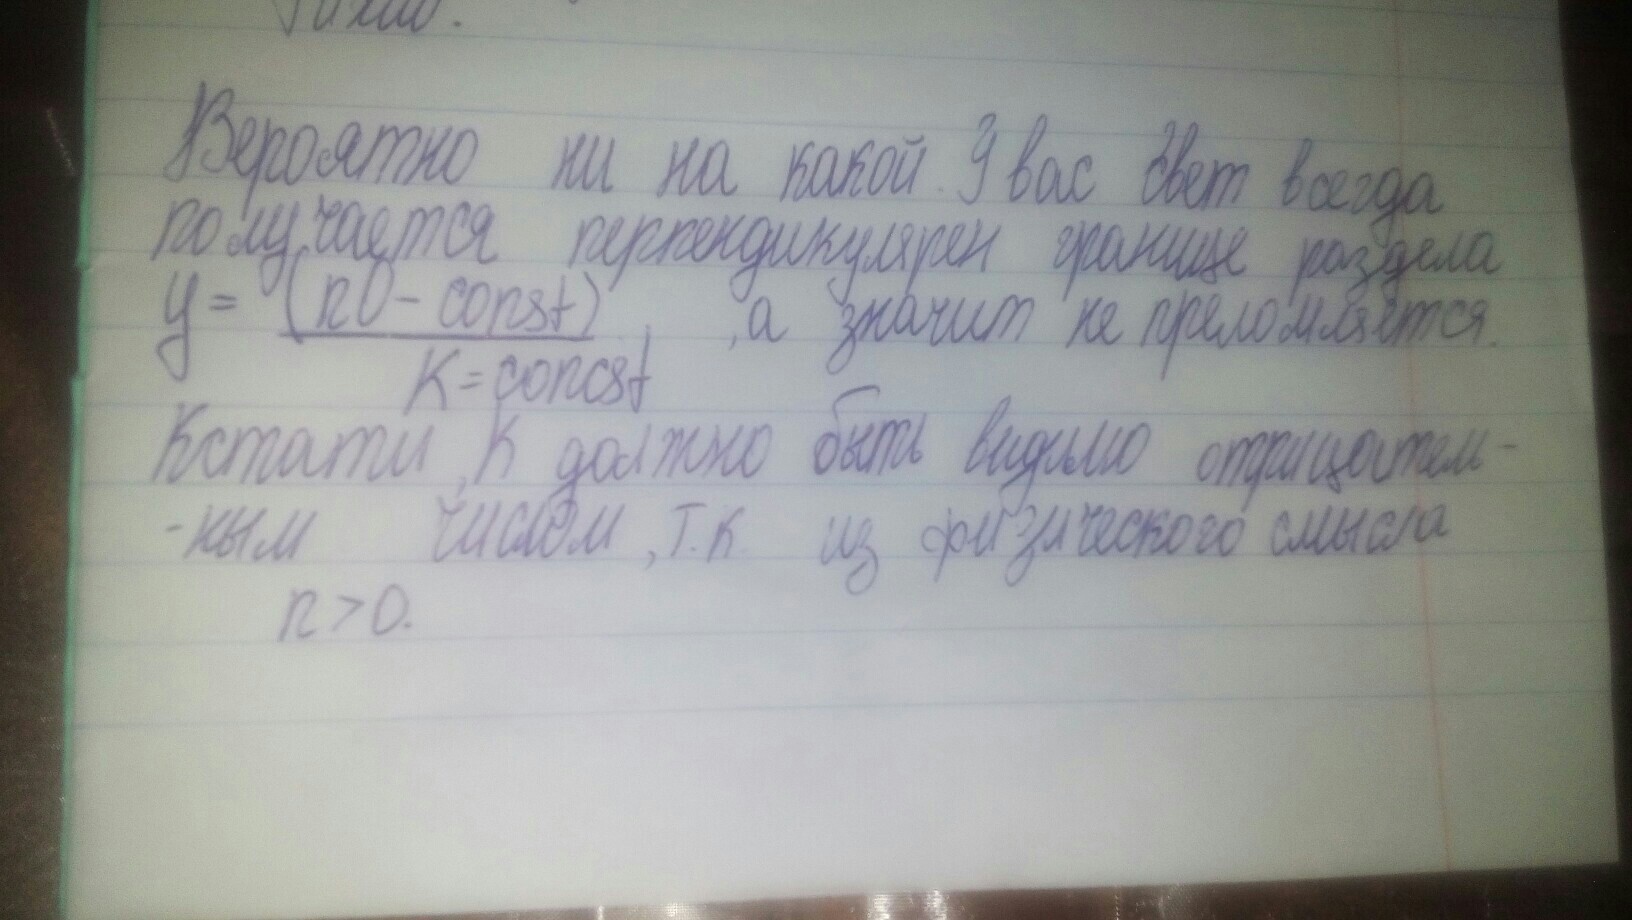 Вероятно ни на какой. У вас свет всегда
получается перпендикулярен границе раздела
y = (n0 - const) , а значит не преломляется.
K = concst
Кстати, К должно быть видимо отрицатель-
-ным числом, т.к. из физического смысла
n > 0.